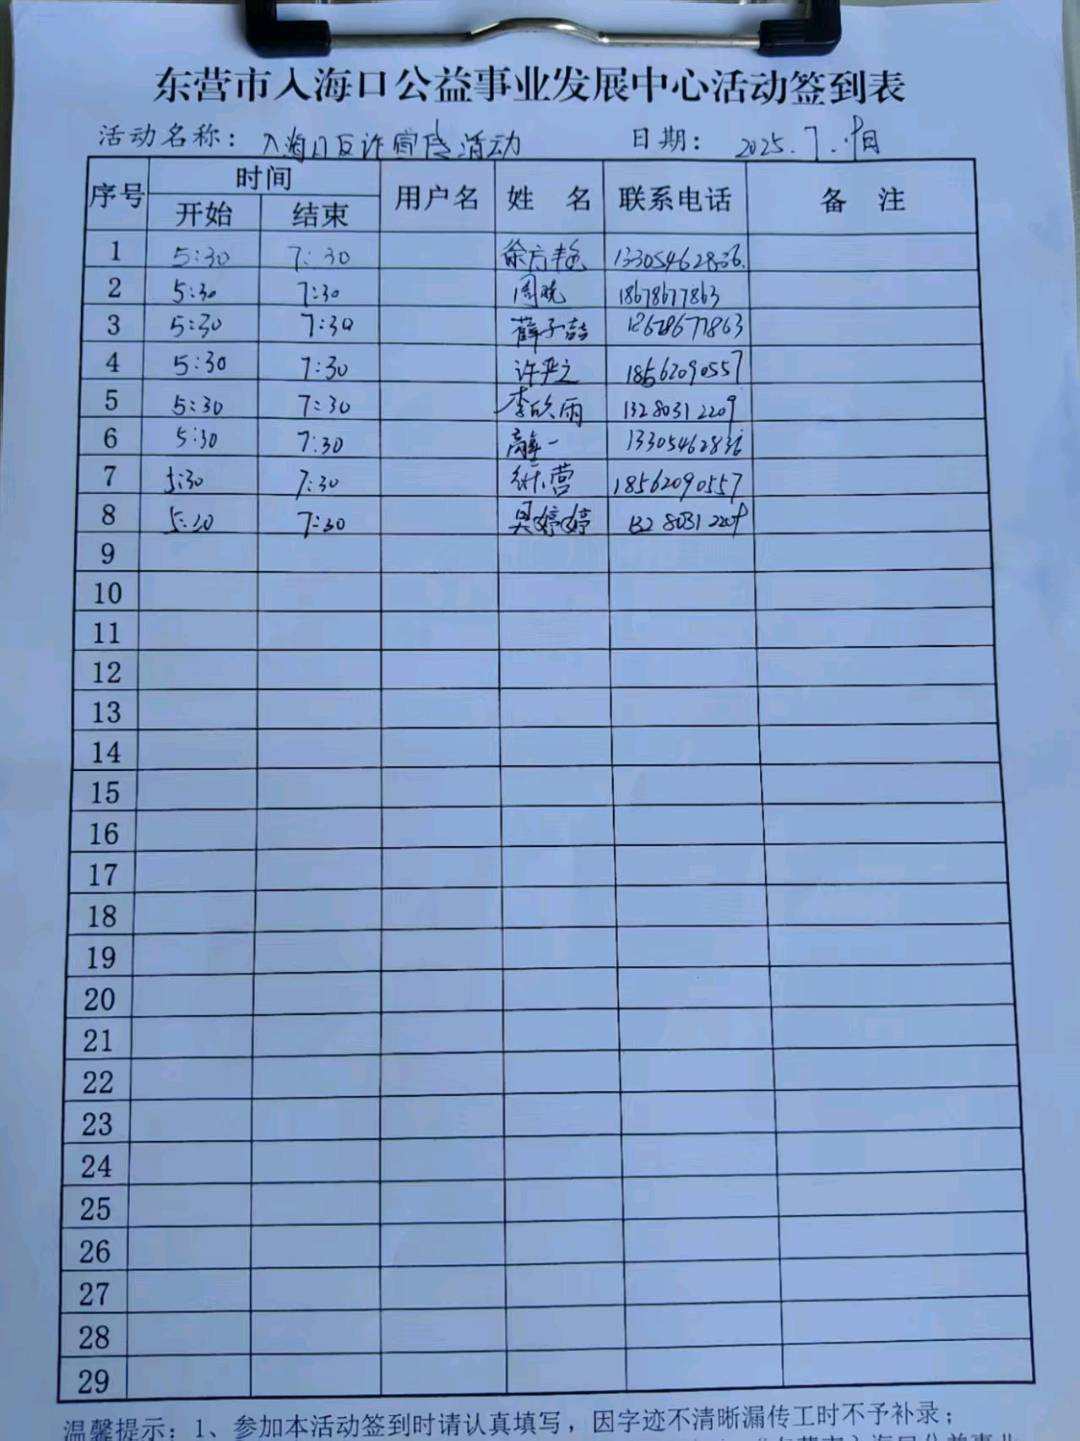 东营市入海口公益事业发展中心活动签到表
活动名称：入海口反诈宣传活动 日期：2025.7.
序号 时间 用户名 姓 名 联系电话 备 注
开始 结束
1 5:30 7:30 徐方艳 13305462836.
2 5:30 7:30 周晓 18678677863
3 5:30 7:30 薛子喆 18678677863
4 5:30 7:30 许严之 18562090557
5 5:30 7:30 李欣雨 13280312209
6 5:30 7:30 一 13305462836
7 5:30 7:30 营 18562090557
8 5:30 7:30 吴婷婷 13280312209
9
10
11
12
13
14
15
16
17
18
19
20
21
22
23
24
25
26
27
28
29
温馨提示：1、参加本活动签到时请认真填写，因字迹不清晰漏传工时不予补录；